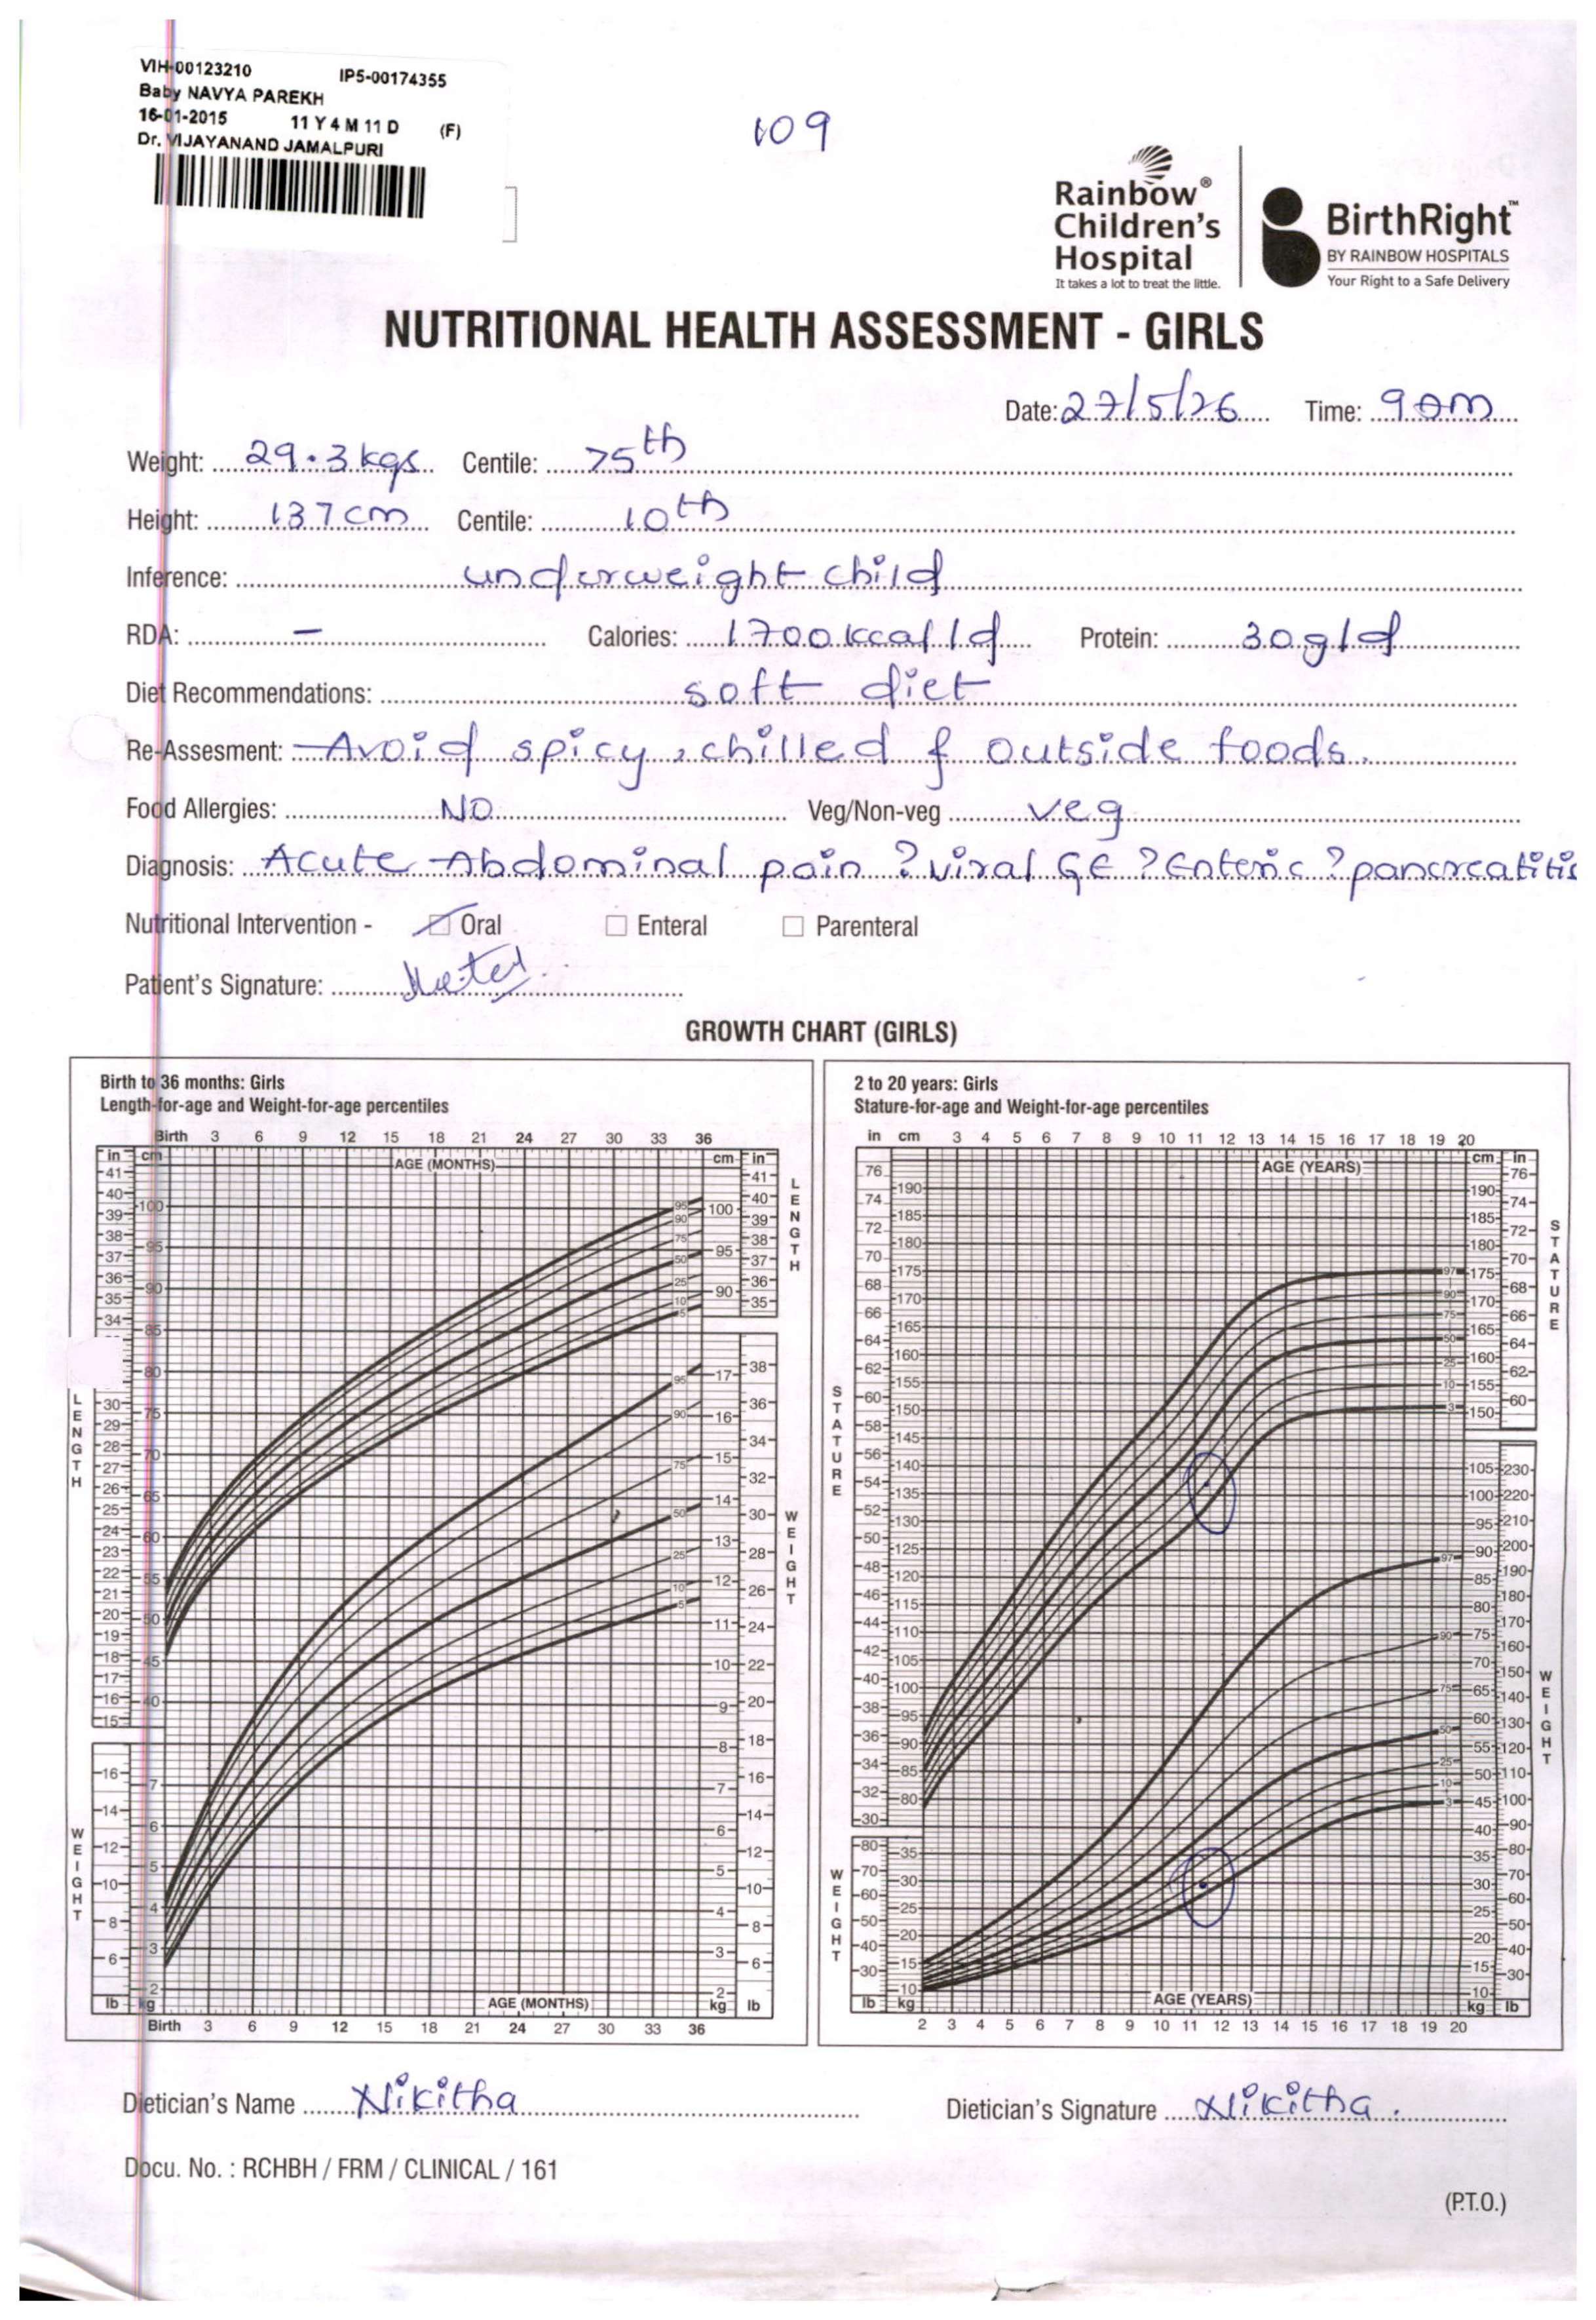 VIH-00123210 IP5-00174355
Baby NAVYA PAREKH
16-01-2015 11 Y 4 M 11 D (F)
Dr. VIJAYANAND JAMALPURI
109
Rainbow® Children's Hospital
It takes a lot to treat the little.
BirthRight™
BY RAINBOW HOSPITALS
Your Right to a Safe Delivery
NUTRITIONAL HEALTH ASSESSMENT - GIRLS
Date: 27/5/26 Time: 9am
Weight: 29.3kgs Centile: 75th
Height: 137cm Centile: 10th
Inference: underweight child
RDA: – Calories: 1700kcal/d Protein: 30g/d
Diet Recommendations: soft diet
Re-Assesment: Avoid spicy, chilled & outside foods.
Food Allergies: NO Veg/Non-veg veg
Diagnosis: Acute Abdominal pain ?viral GE ?Enteric ?pancreatitis
Nutritional Intervention - Oral Enteral Parenteral
Patient's Signature:
GROWTH CHART (GIRLS)
Birth to 36 months: Girls
Length-for-age and Weight-for-age percentiles
Birth 3 6 9 12 15 18 21 24 27 30 33 36
AGE (MONTHS)
LENGTH
WEIGHT
AGE (MONTHS)
Birth 3 6 9 12 15 18 21 24 27 30 33 36
2 to 20 years: Girls
Stature-for-age and Weight-for-age percentiles
in cm 3 4 5 6 7 8 9 10 11 12 13 14 15 16 17 18 19 20
AGE (YEARS)
STATURE
WEIGHT
AGE (YEARS)
2 3 4 5 6 7 8 9 10 11 12 13 14 15 16 17 18 19 20
Dietician's Name Nikitha Dietician's Signature Nikitha.
Docu. No. : RCHBH / FRM / CLINICAL / 161
(P.T.O.)